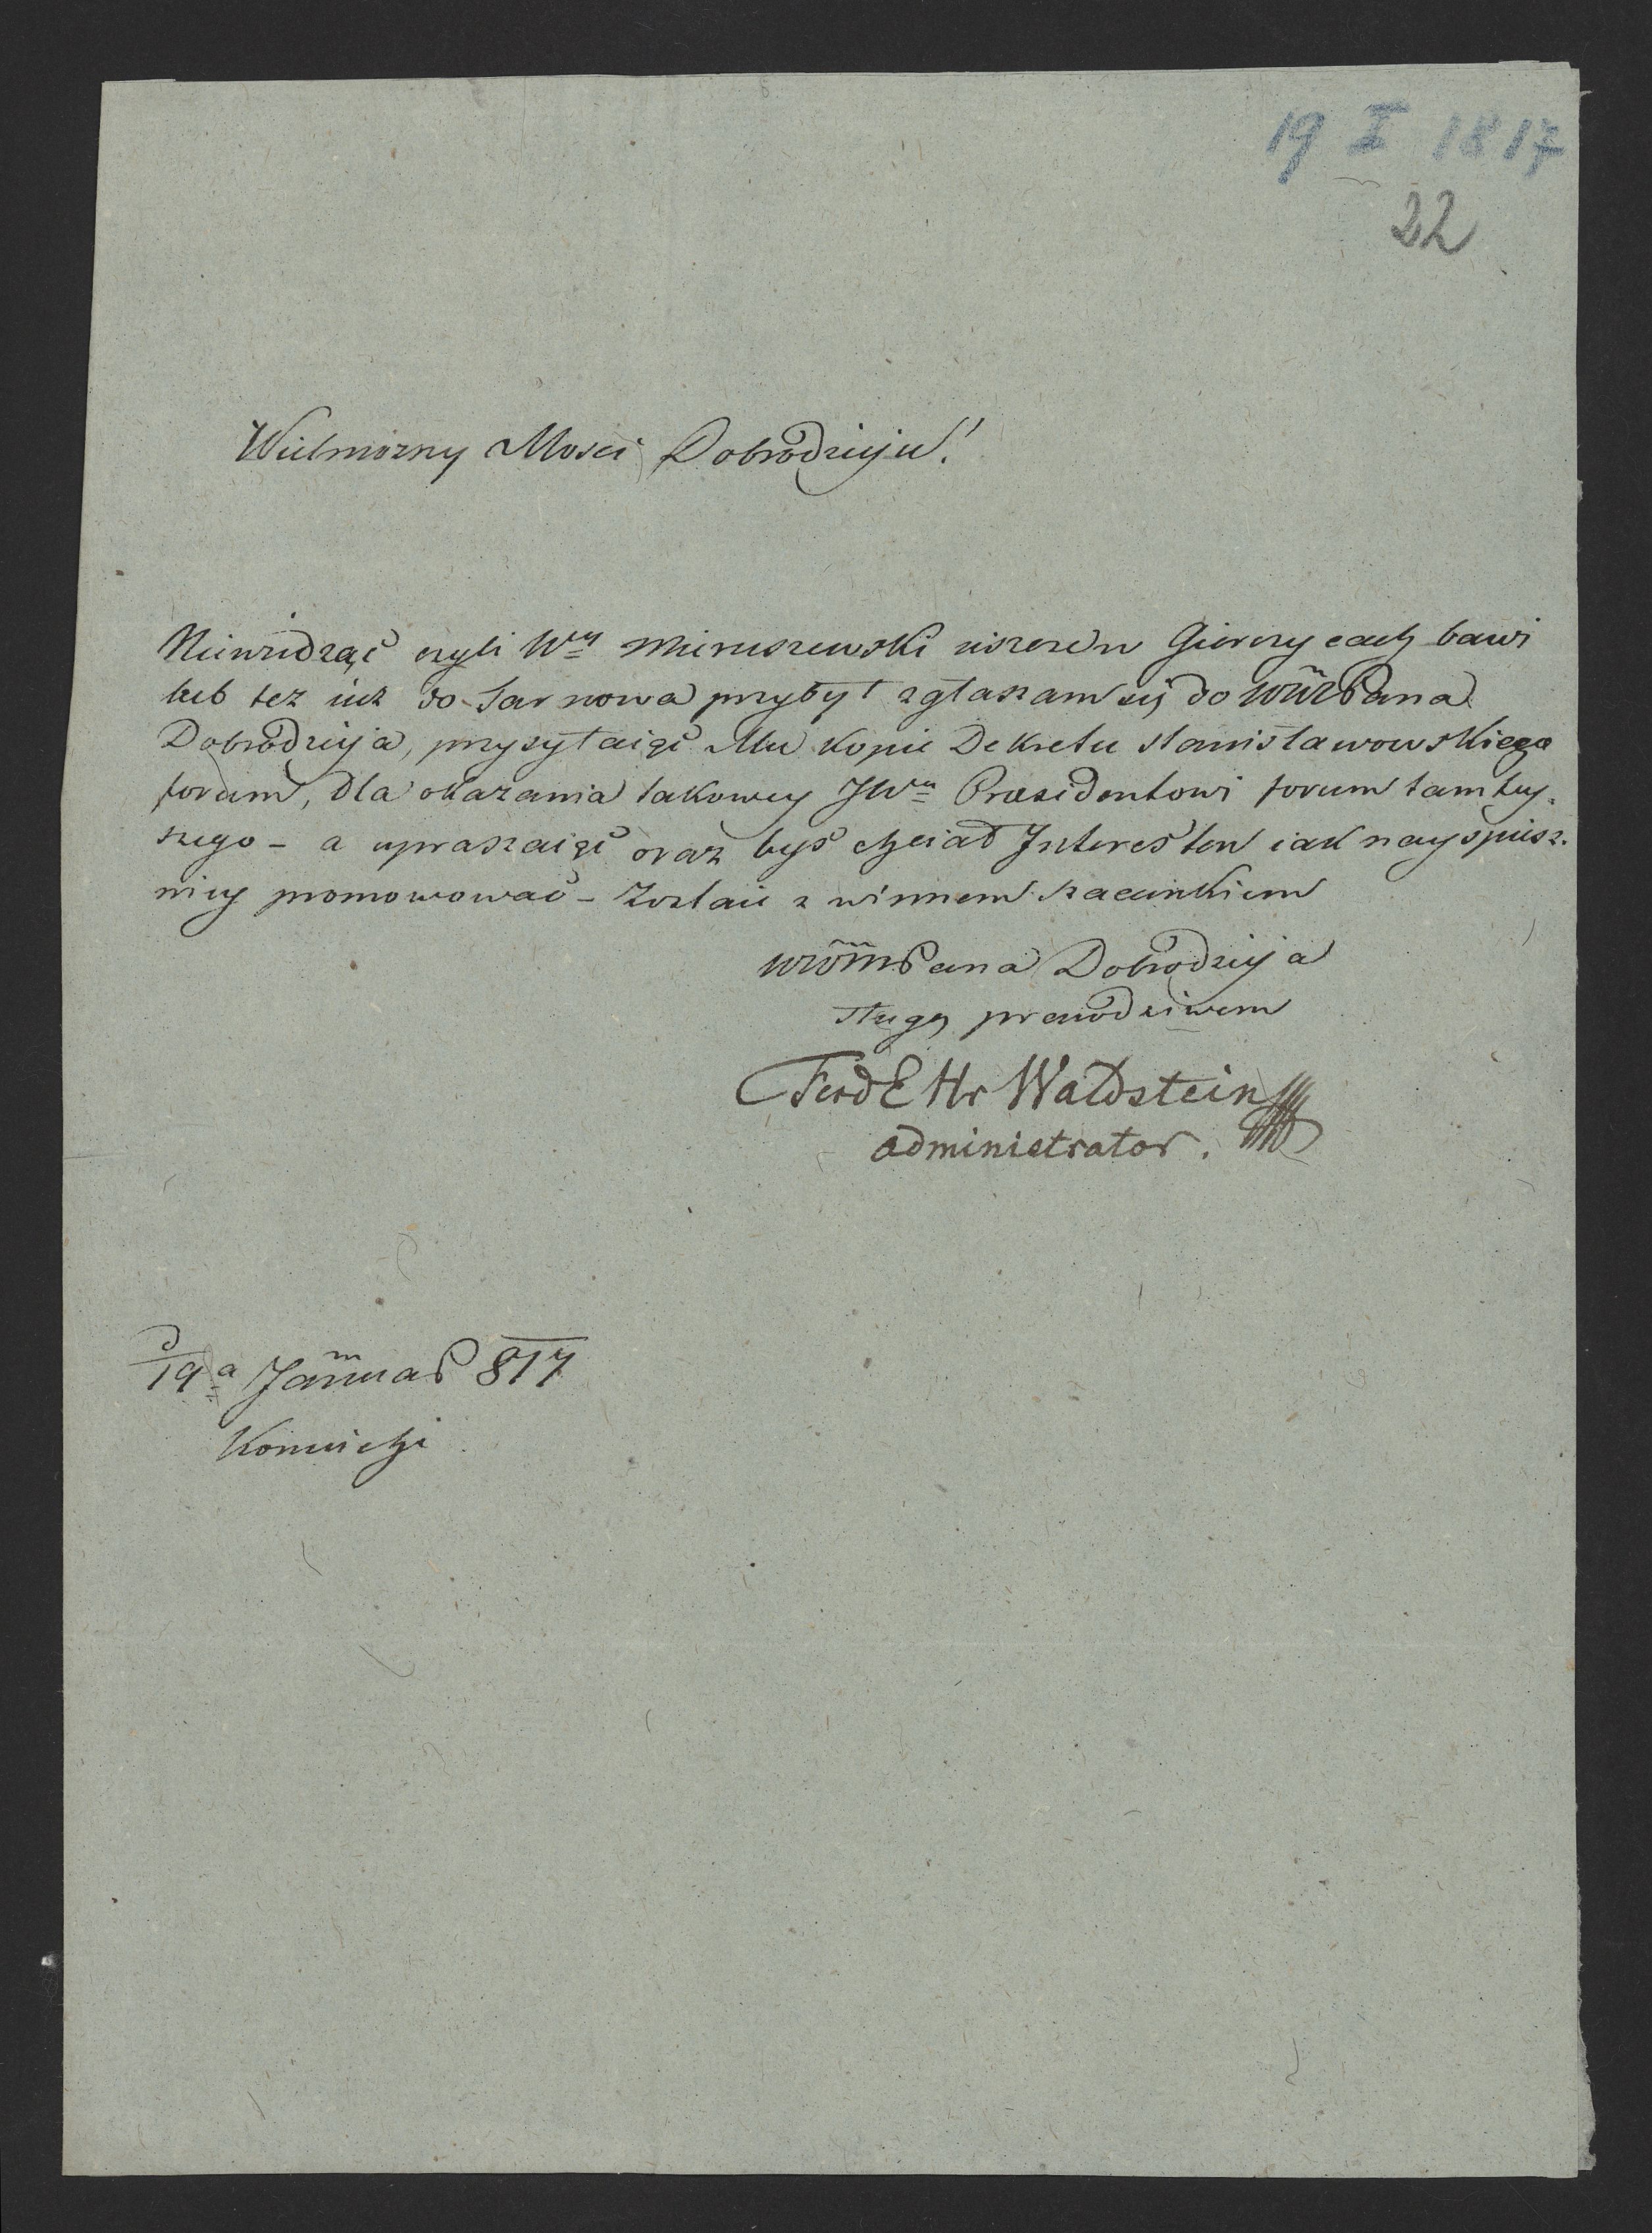 19 I 1817
22
Wielmożny Mosci Dobrodzieju!
Niewiedząć czyli Wny Mieruszewski ieszcze w Gierczycach bawi
lub tez iuż do Tarnowa przybył zgłaszam się do WürPana
Dobrodzieja, przysyłaiąć Mu kopie Dekretu Stanisławowskiego
forum, dla okazania takowey JWmu Praesidentowi forum tamtey-
szego – a upraszaiąć oraz byś chciał Interes ten iak nayspiesz-
niey promowować – Zostaie z winnem szacunkiem
WPana Dobrodzieja
sługą prawdziwem
Ferd E Hr Waldstein
administrator.
d 19a Januar 817
Koniuchi